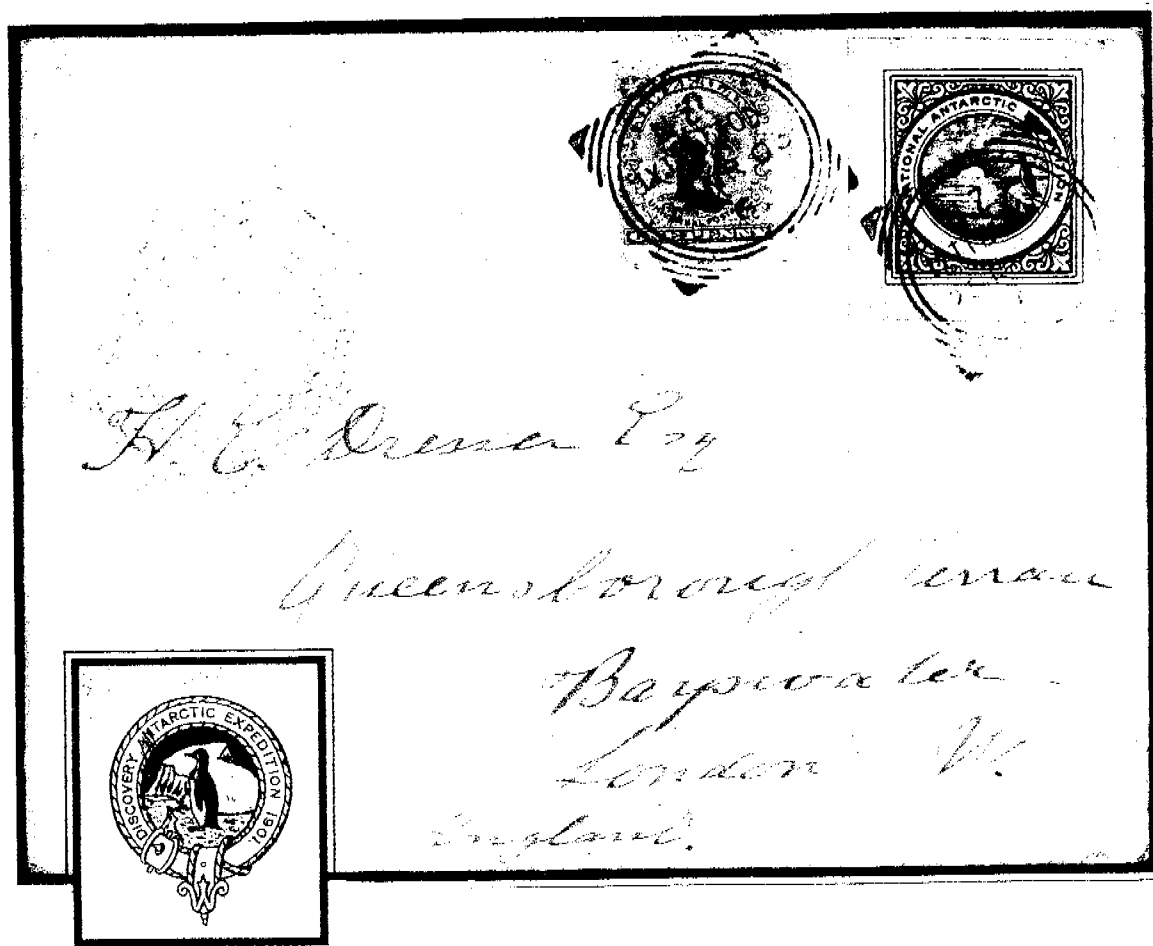 ONE PENNY
NATIONAL ANTARCTIC
H. E. Dresser Esq
Queensborough Terrace
Bayswater
London W.
England.
DISCOVERY ANTARCTIC EXPEDITION 1901.